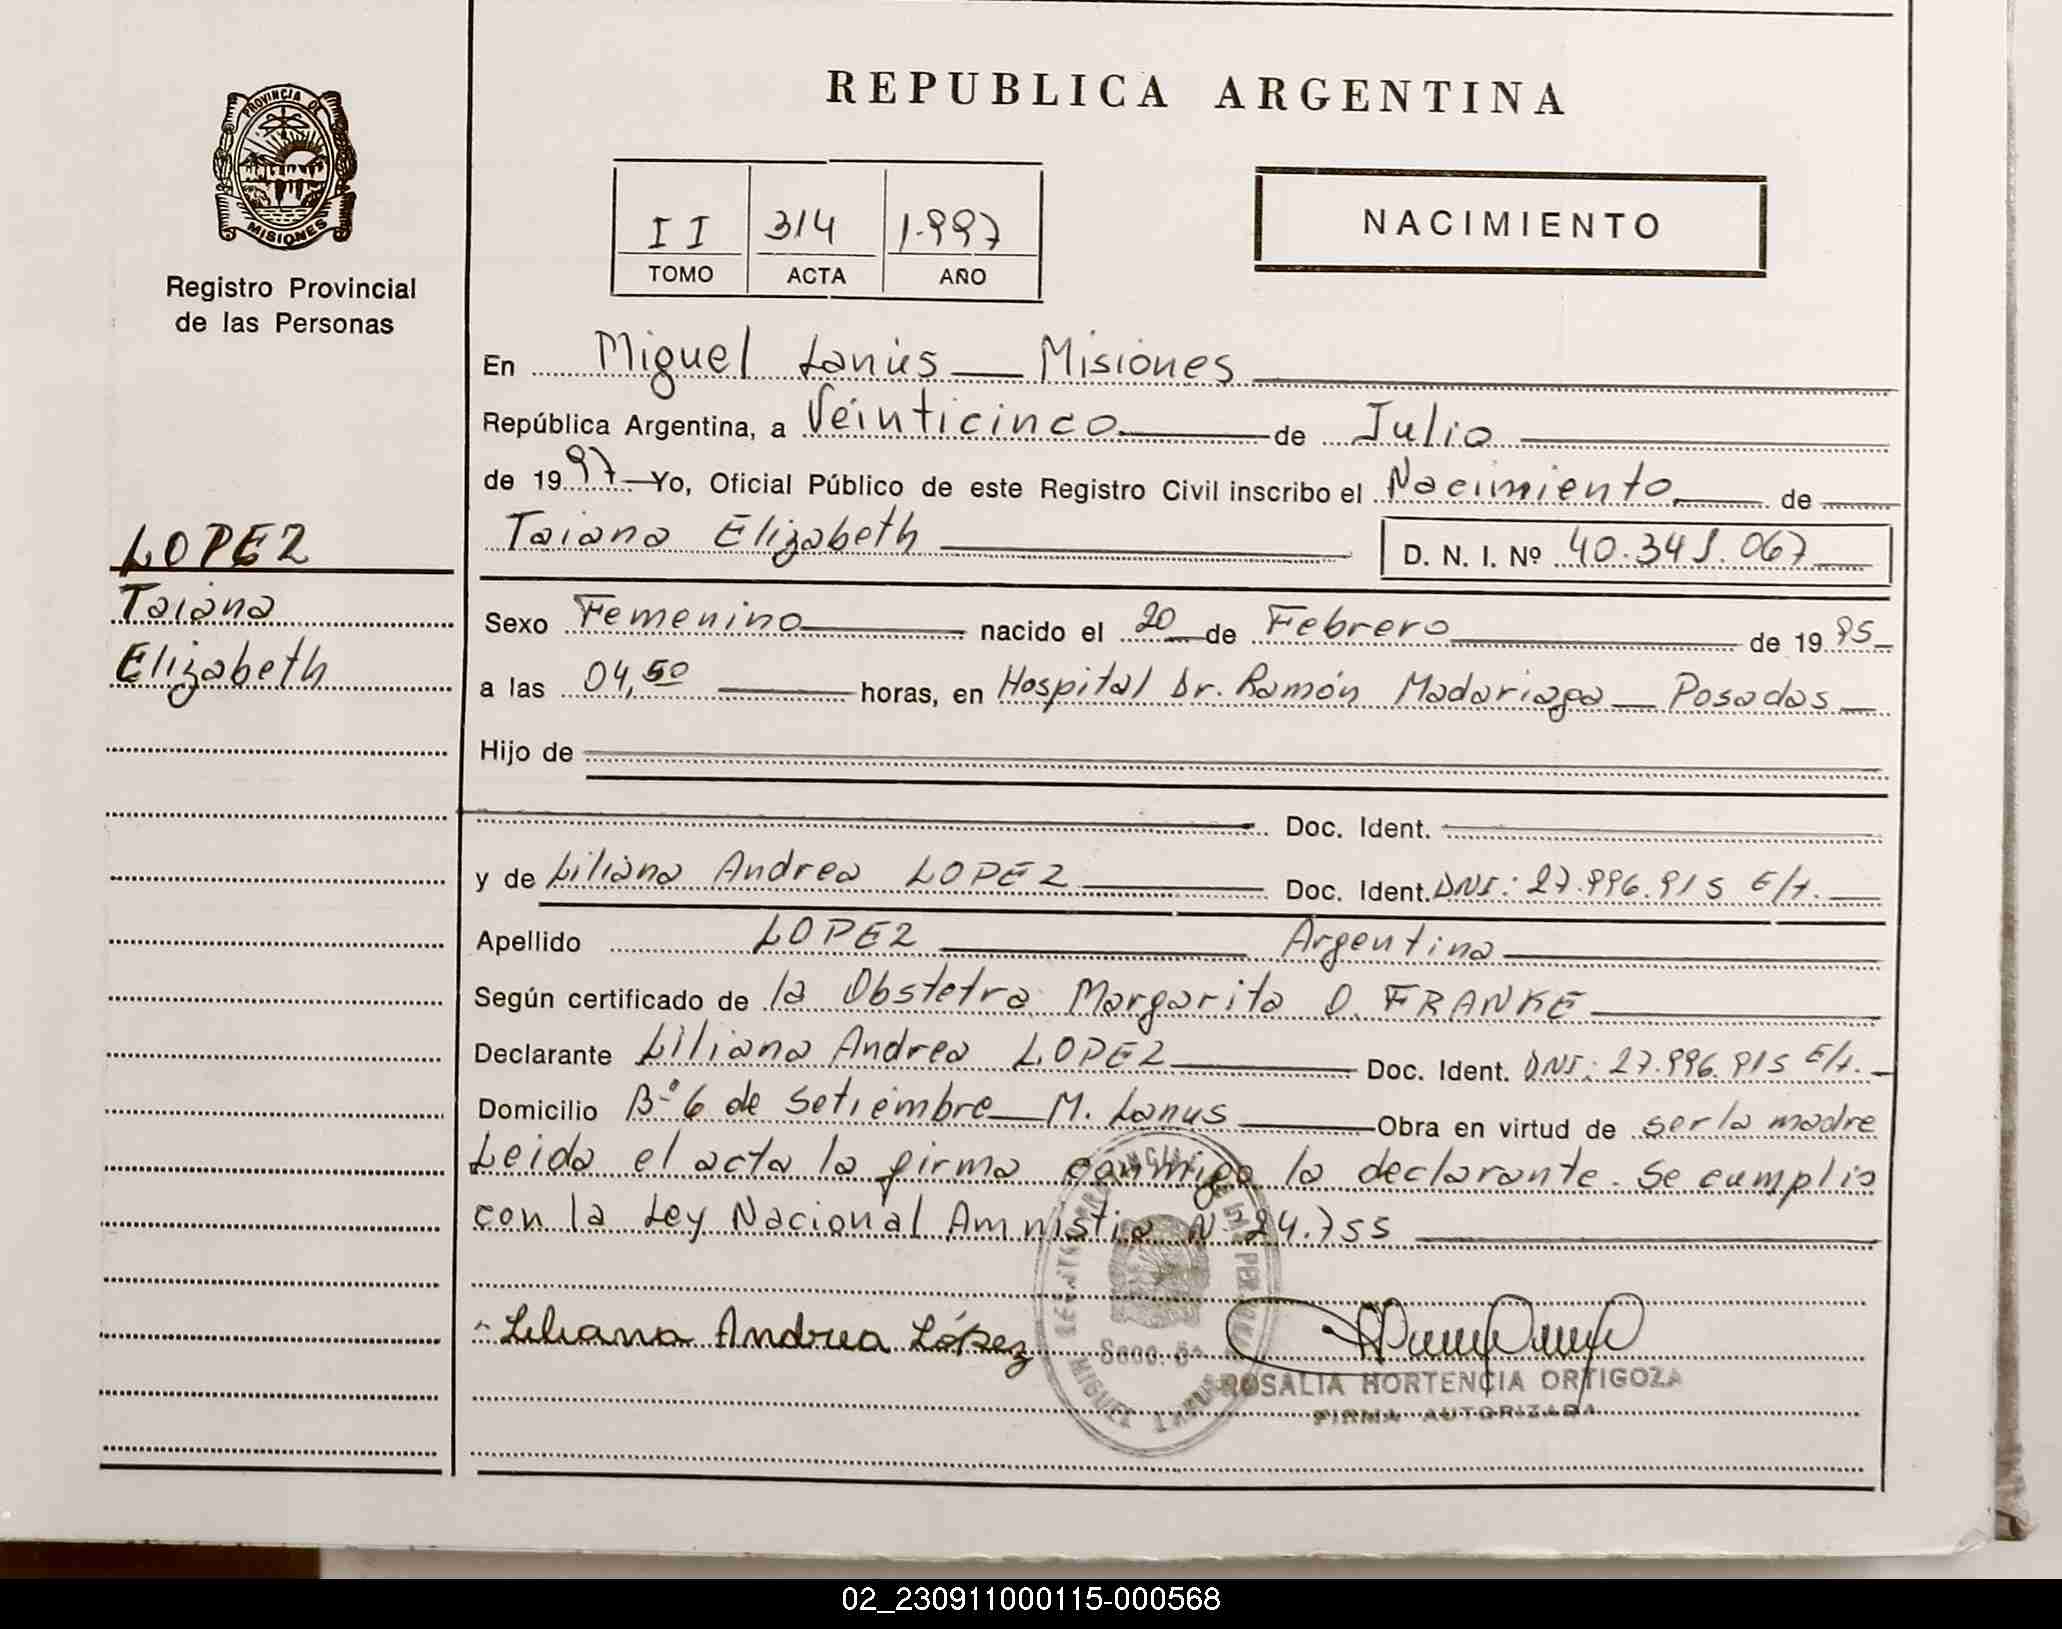 REPUBLICA ARGENTINA
PROVINCIA DE
MISIONES
Registro Provincial
de las Personas
II 314 1.997
TOMO ACTA AÑO
NACIMIENTO
En Miguel Lanús Misiones
República Argentina, a Veinticinco de Julio
de 1997 Yo, Oficial Público de este Registro Civil inscribo el Nacimiento de
Taiana Elizabeth D. N. I. Nº 40.341.067
LOPEZ
Taiana
Elizabeth
Sexo Femenino nacido el 20 de Febrero de 1995
a las 04,50 horas, en Hospital Dr. Ramón Madariaga Posadas
Hijo de
Doc. Ident.
y de Liliana Andrea LOPEZ Doc. Ident. DNI: 27.996.915 E/t.
Apellido LOPEZ Argentina
Según certificado de la Obstetra Margarita O. FRANKE
Declarante Liliana Andrea LOPEZ Doc. Ident. DNI: 27.996.915 E/t.
Domicilio Bº 6 de Setiembre M. Lanus Obra en virtud de ser la madre
Leida el acta la firma conmigo la declarante. Se cumplio
con la Ley Nacional Amnistia Nº 24.755
Liliana Andrea López
ROSALIA HORTENCIA ORTIGOZA
FIRMA AUTORIZADA
02_230911000115-000568